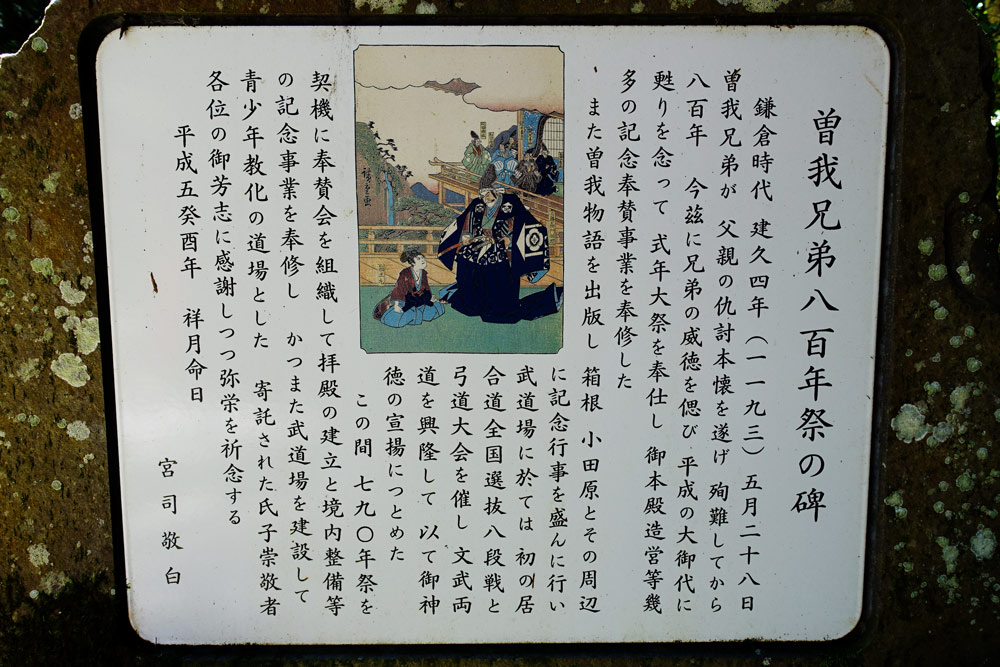 曽我兄弟八百年祭の碑
鎌倉時代 建久四年(一一九三)五月二十八日
曽我兄弟が 父親の仇討本懐を遂げ 殉難してから
八百年 今茲に兄弟の威徳を偲び 平成の大御代に
甦りを念って 式年大祭を奉仕し 御本殿造営等幾
多の記念奉賛事業を奉修した
また曽我物語を出版し 箱根 小田原とその周辺
に記念行事を盛んに行い
武道場に於ては 初の居
合道全国選抜八段戦と
弓道大会を催し 文武両
道を興隆して 以て御神
徳の宣揚につとめた
この間 七九〇年祭を
契機に奉賛会を組織して拝殿の建立と境内整備等
の記念事業を奉修し かつまた武道場を建設して
青少年教化の道場とした 寄託された氏子崇敬者
各位の御芳志に感謝しつつ弥栄を祈念する
平成五癸酉年 祥月命日
宮司敬白
廣重画